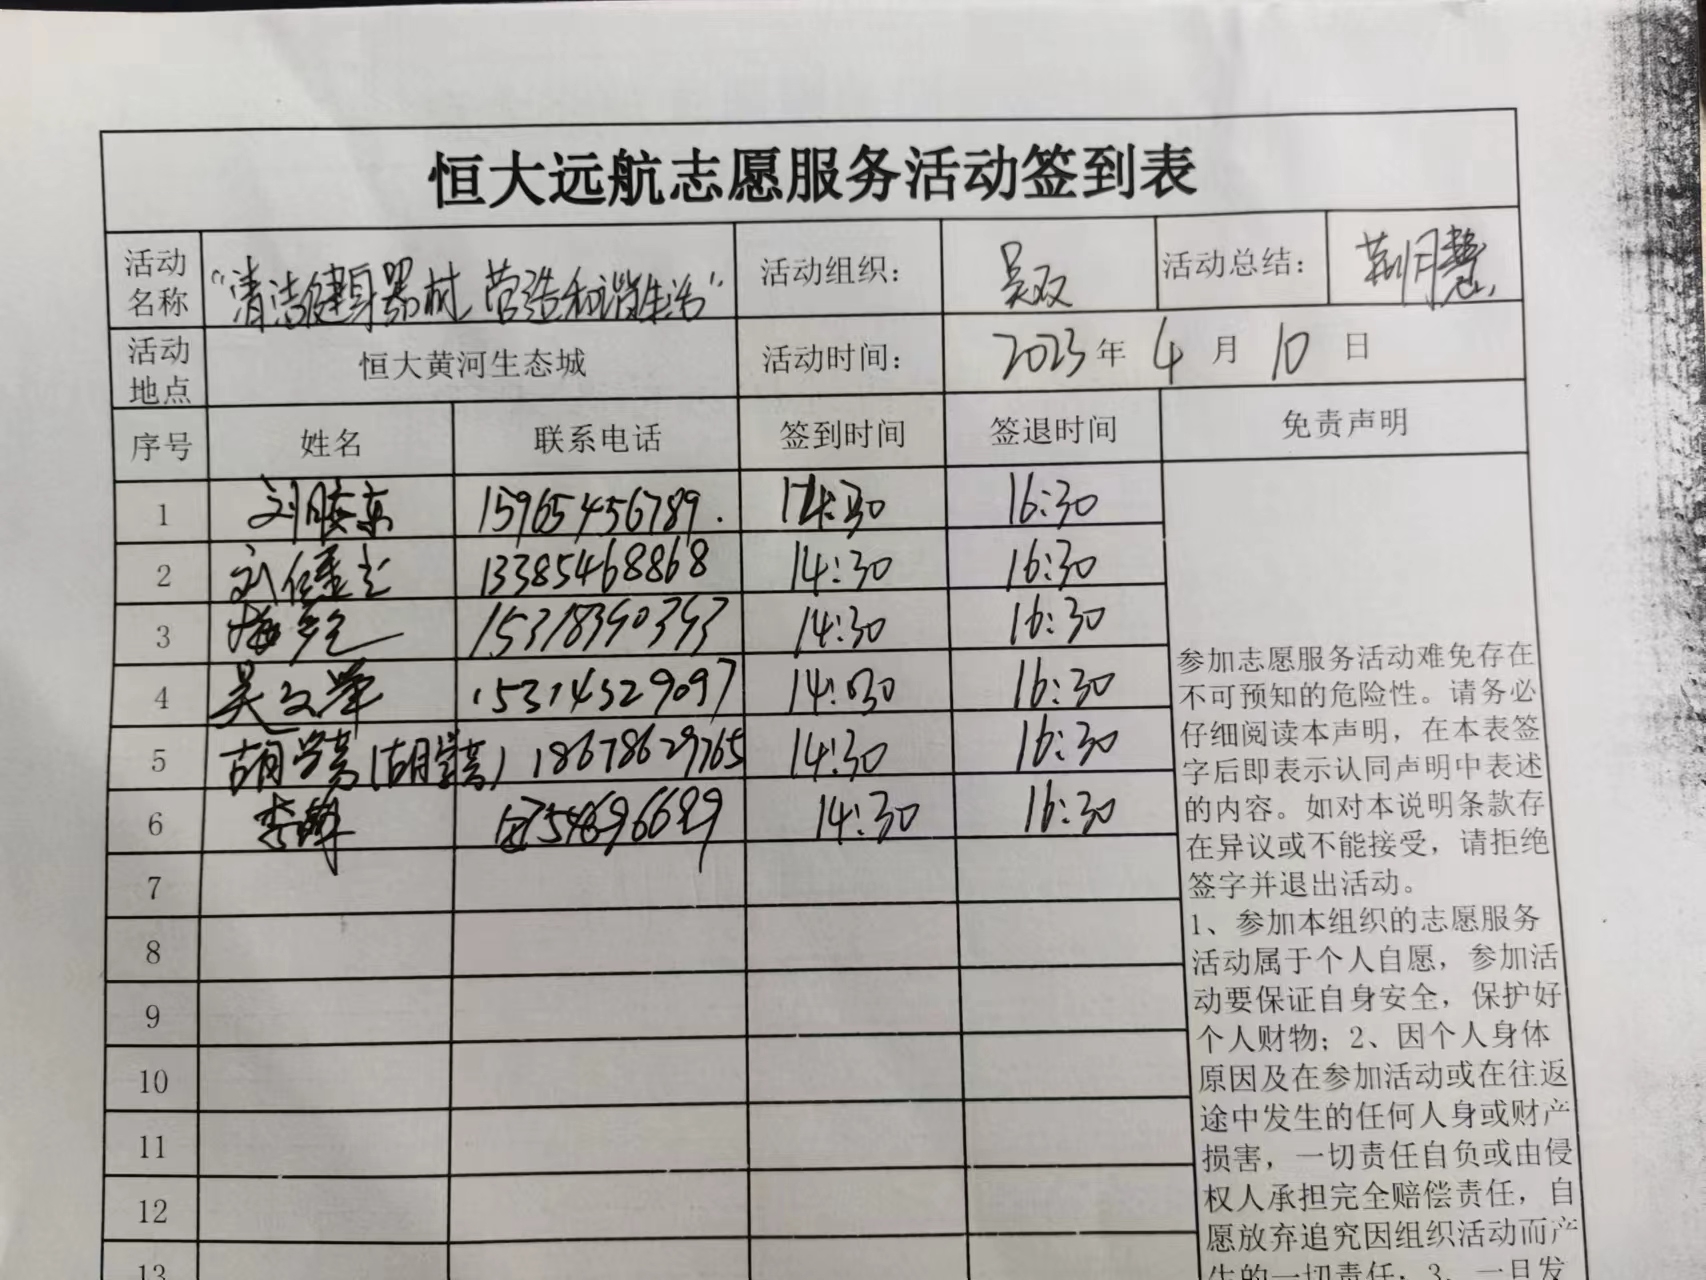 恒大远航志愿服务活动签到表
活动名称 “清洁健身器材 营造和谐生活” 活动组织： 吴双 活动总结： 荆月慧
活动地点 恒大黄河生态城 活动时间： 2023年 4 月 10 日
序号 姓名 联系电话 签到时间 签退时间 免责声明
1 15965456789. 14:30 16:30
2 13385468868 14:30 16:30
3 15318390393 14:30 16:30
4 吴文 15314329097 14:30 16:30
5 18678629765 14:30 16:30
6 李 14:30 16:30
7
8
9
10
11
12
13
参加志愿服务活动难免存在
不可预知的危险性。请务必
仔细阅读本声明，在本表签
字后即表示认同声明中表述
的内容。如对本说明条款存
在异议或不能接受，请拒绝
签字并退出活动。
1、参加本组织的志愿服务
活动属于个人自愿，参加活
动要保证自身安全，保护好
个人财物；2、因个人身体
原因及在参加活动或在往返
途中发生的任何人身或财产
损害，一切责任自负或由侵
权人承担完全赔偿责任，自
愿放弃追究因组织活动而产
生的一切责任；3、一旦发